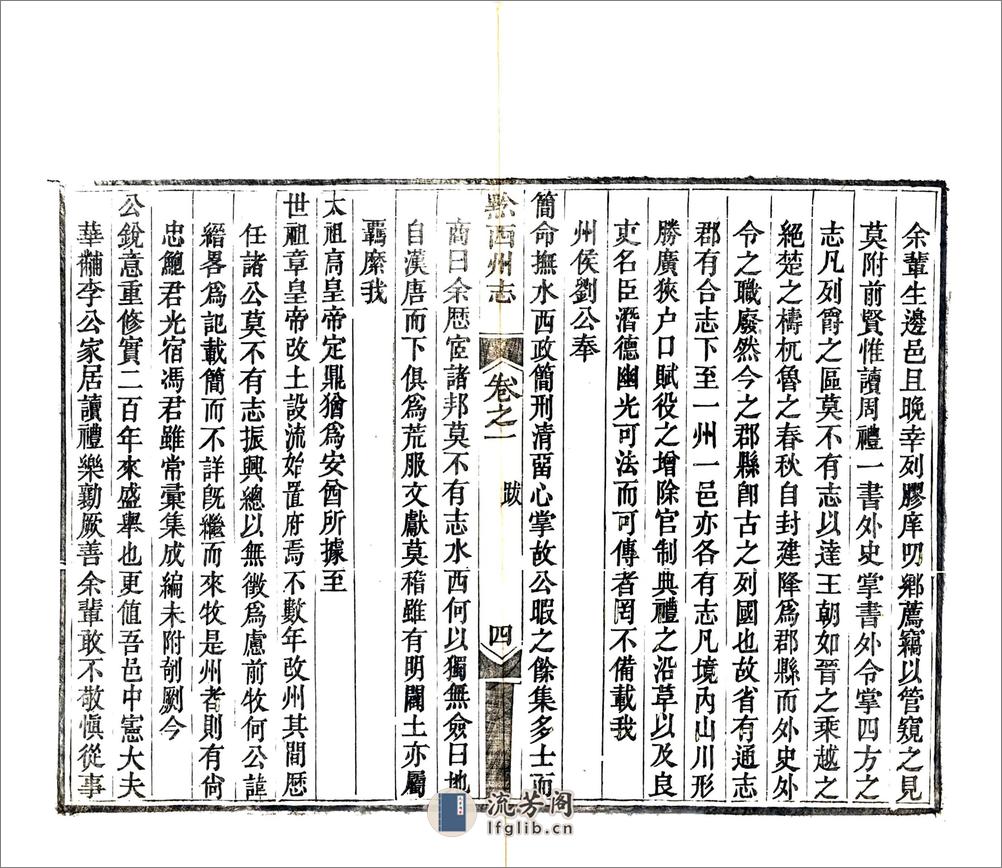 余輩生邊邑且晚幸列膠庠叨鄉薦竊以管窺之見
莫附前賢惟讀周禮一書外史掌書外令掌四方之
志凡列爵之區莫不有志以達王朝如晉之乘越之
絕楚之檮杌魯之春秋自封建降為郡縣而外史外
令之職廢然今之郡縣卽古之列國也故省有通志
郡有合志下至一州一邑亦各有志凡境內山川形
勝廣狹户口賦役之增除官制典禮之沿革以及良
吏名臣潛德幽光可法而可傳者罔不備載我
州侯劉公奉
簡命撫水西政簡刑清畱心掌故公暇之餘集多士而
黔西州志
卷之一
跋
四
商曰余歷宦諸邦莫不有志水西何以獨無僉曰地
自漢唐而下俱為荒服文獻莫稽雖有明闢土亦屬
羈縻我
太祖高皇帝定鼎猶為安酋所據至
世祖章皇帝改土設流始置府焉不數年改州其間歷
任諸公莫不有志振興總以無徵為慮前牧何公諱
縉畧為記載簡而不詳旣繼而來牧是州者則有尙
忠鮑君光宿馮君雖常彙集成編未附剞劂今
公銳意重修實二百年來盛舉也更值吾邑中憲大夫
華黼李公家居讀禮樂勷厥善余輩敢不敬愼從事
流芳阁
lfglib.cn